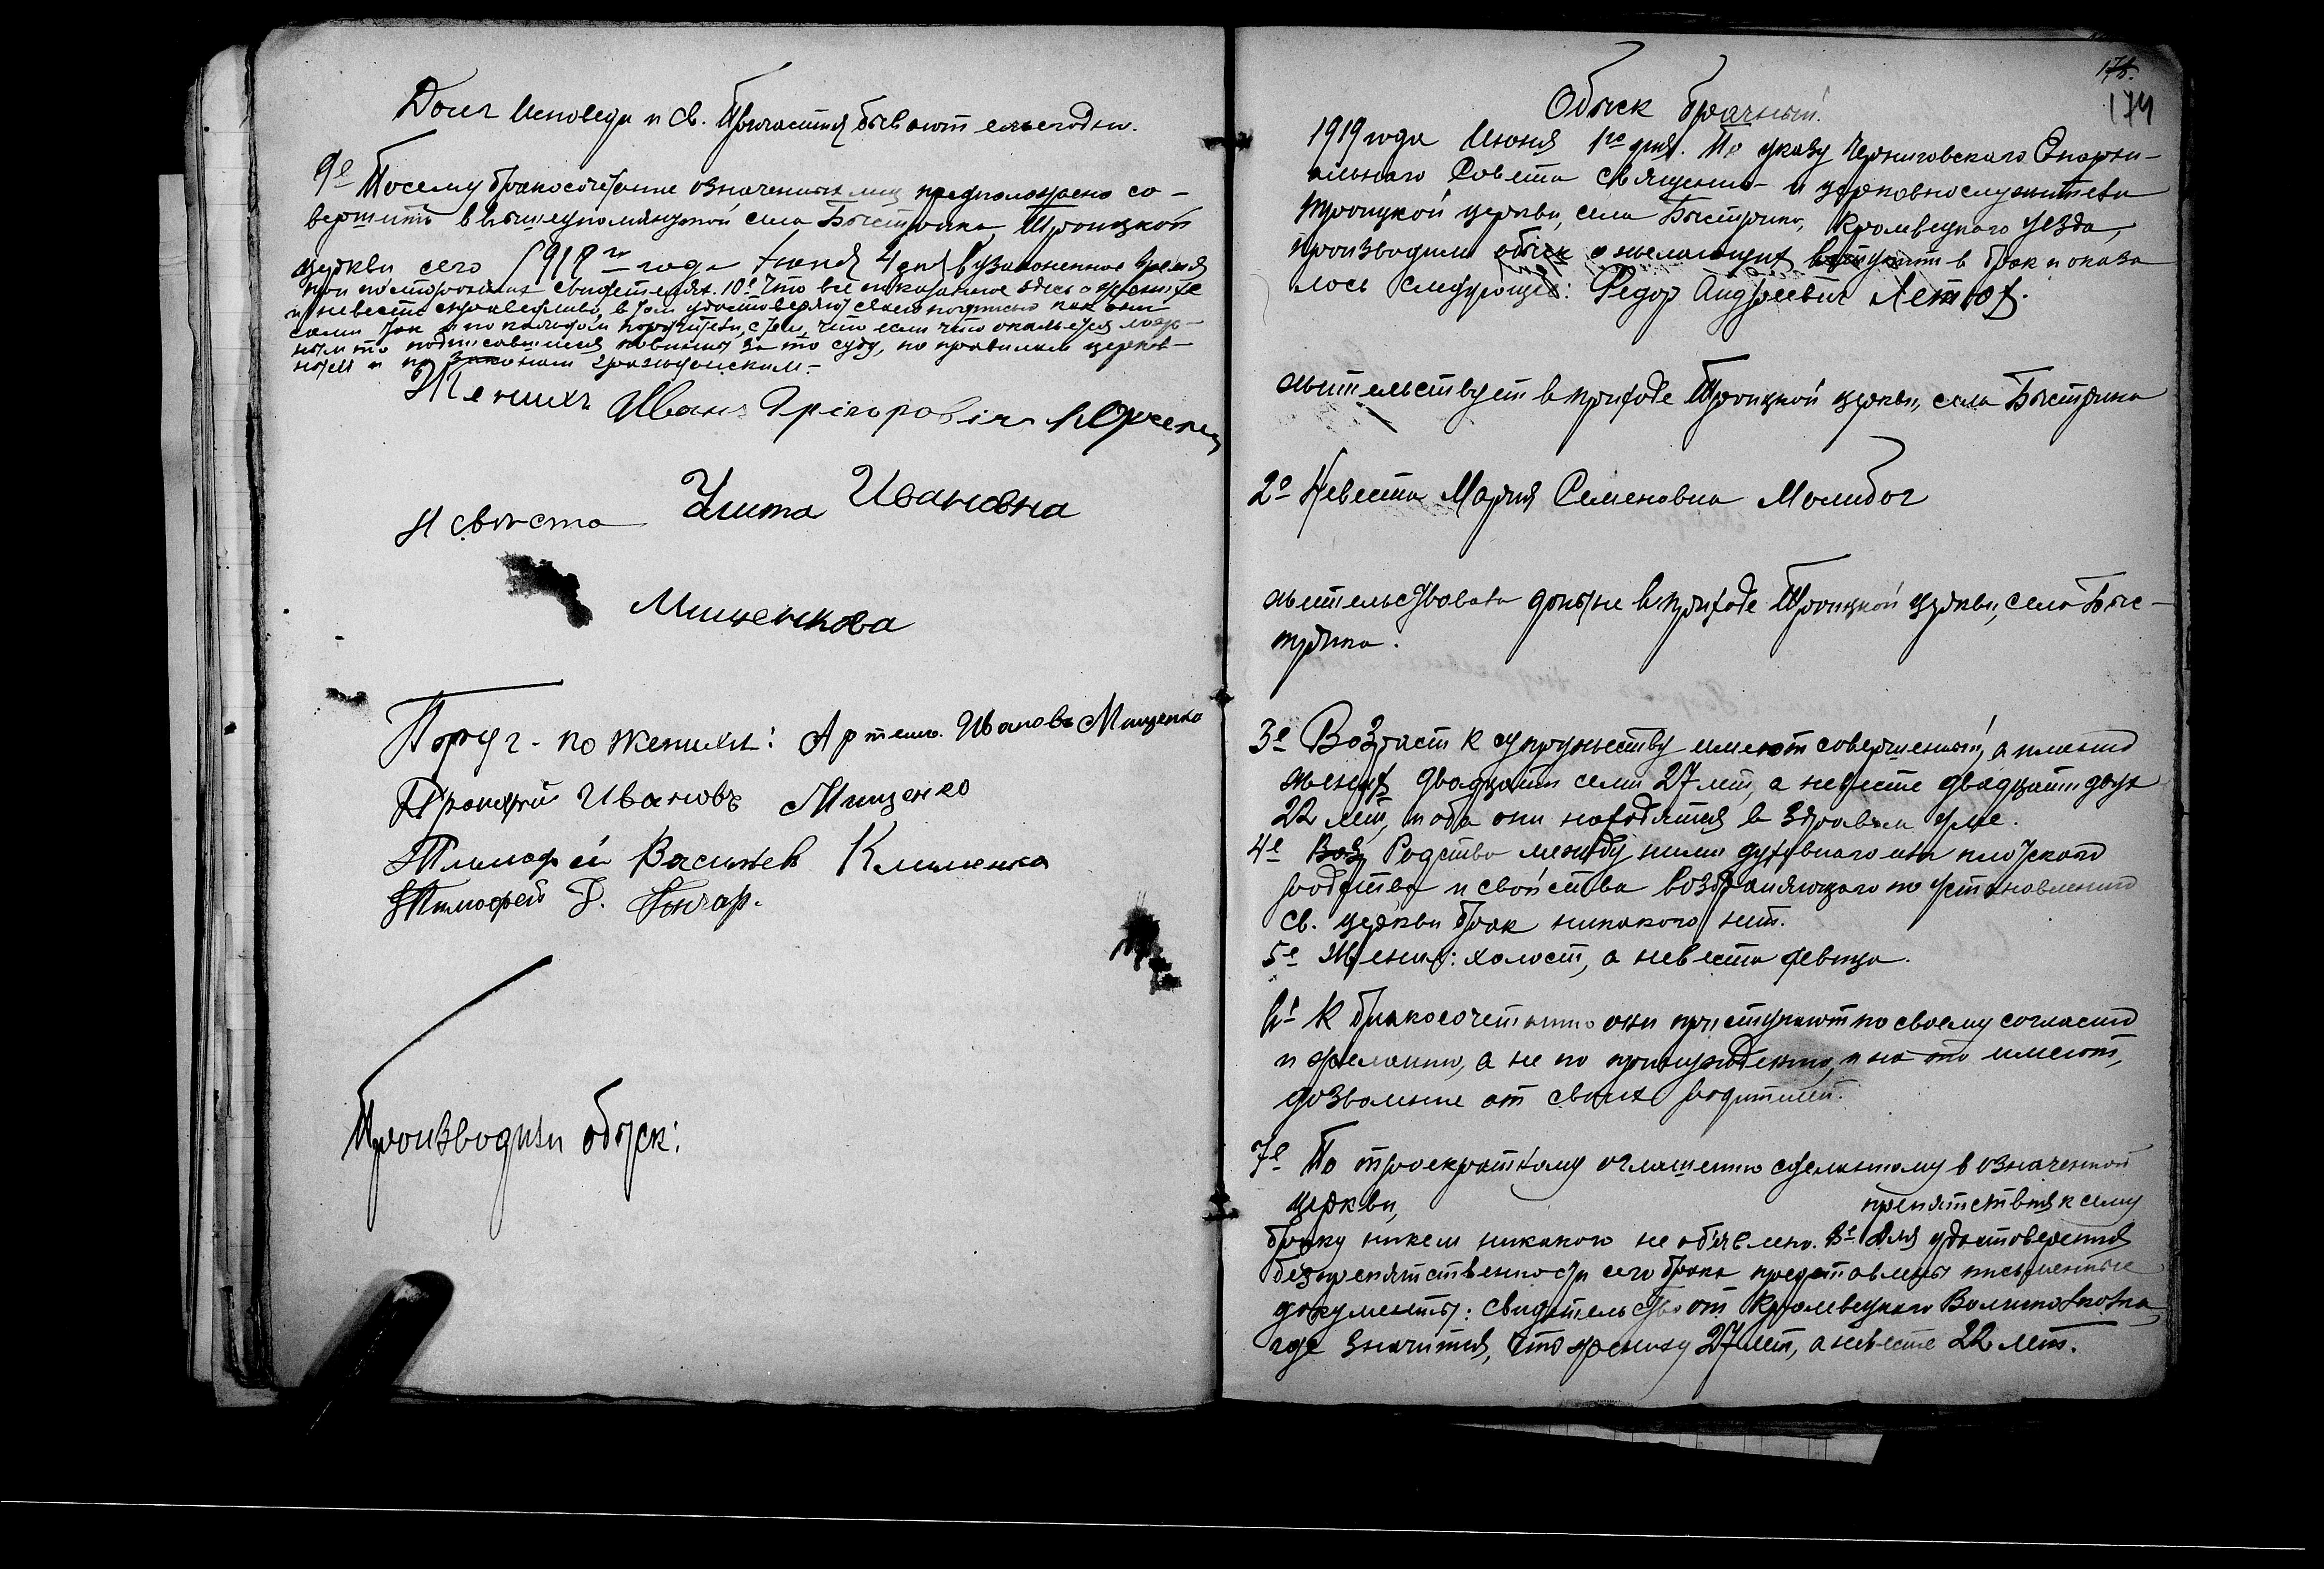 Долг Исповеди и св. Причастия бывают ежегодно.
9е Посему бракосочетание означенных лиц предположено со-
вершить в вышеупомянутой села Быстрика, Троицкой
церкви сего 1919го года Июня 4 дня в узаконенное время
при посторонних свидетелях. 10е Что все показанное здесь о женихе
и невесте справедливо, в том удостоверяют своею подписью как они
сами так и по каждом поручители, с тем, что если что окажется лож-
ным то подписавшиеся повинны за то суду, по правилам церков-
ным и по законам гражданским.-
Жених Иван Григоровіч
Невѣста Улита Ивановна
Мищенкова
Поруч. по женихи: Артем. Иванов Мищенко
Прокофій Ивановъ Мищенко
Тимофей Васильев Клименко
Тимофей Гончар.
Производили обыск:
174
Обыск брачный.
1919 года Июня 1го дня. По указу Черниговскаго Епархи-
альнаго Совета священно- и церковнослужители
Троицкой церкви, села Быстрика, Кролевецкаго уезда,
производили обыск о желающих вступить в брак и оказа
лось следующее: Федор Андреевич
жительствует в приходе Троицкой церкви, села Быстрика
2е Невеста Мария Семеновна Молибог
жительствовала доныне в приходе Троицкой церкви, села Быс-
трика.
3е Возраст к супружеству имеют совершенный, а именно
жених двадцати семи 27 лет, а невесте двадцати двух
22 лет, и оба они находятся в здравом уме.
4е Воз Родства между ними духовнаго или плотскаго
родства и свойства возбраняющаго по установлению
св. церкви брак никакого нет.
5е Жених: холост, а невеста девица.
6е К бракосочетанию они приступают по своему согласию
и желанию, а не по принуждению, и на то имеют,
дозволение от своих родителей.
7е По троекратному оглашению сделанному в означенной
церкви, препятствия к сему
браку никем никакого не объявлено. 8е Для удостоверения
безпрепятственности сего брака представлены письменные
документы: свидетельство от Кролевецкаго
где значится, что жениху 27 лет, а невесте 22 лет.